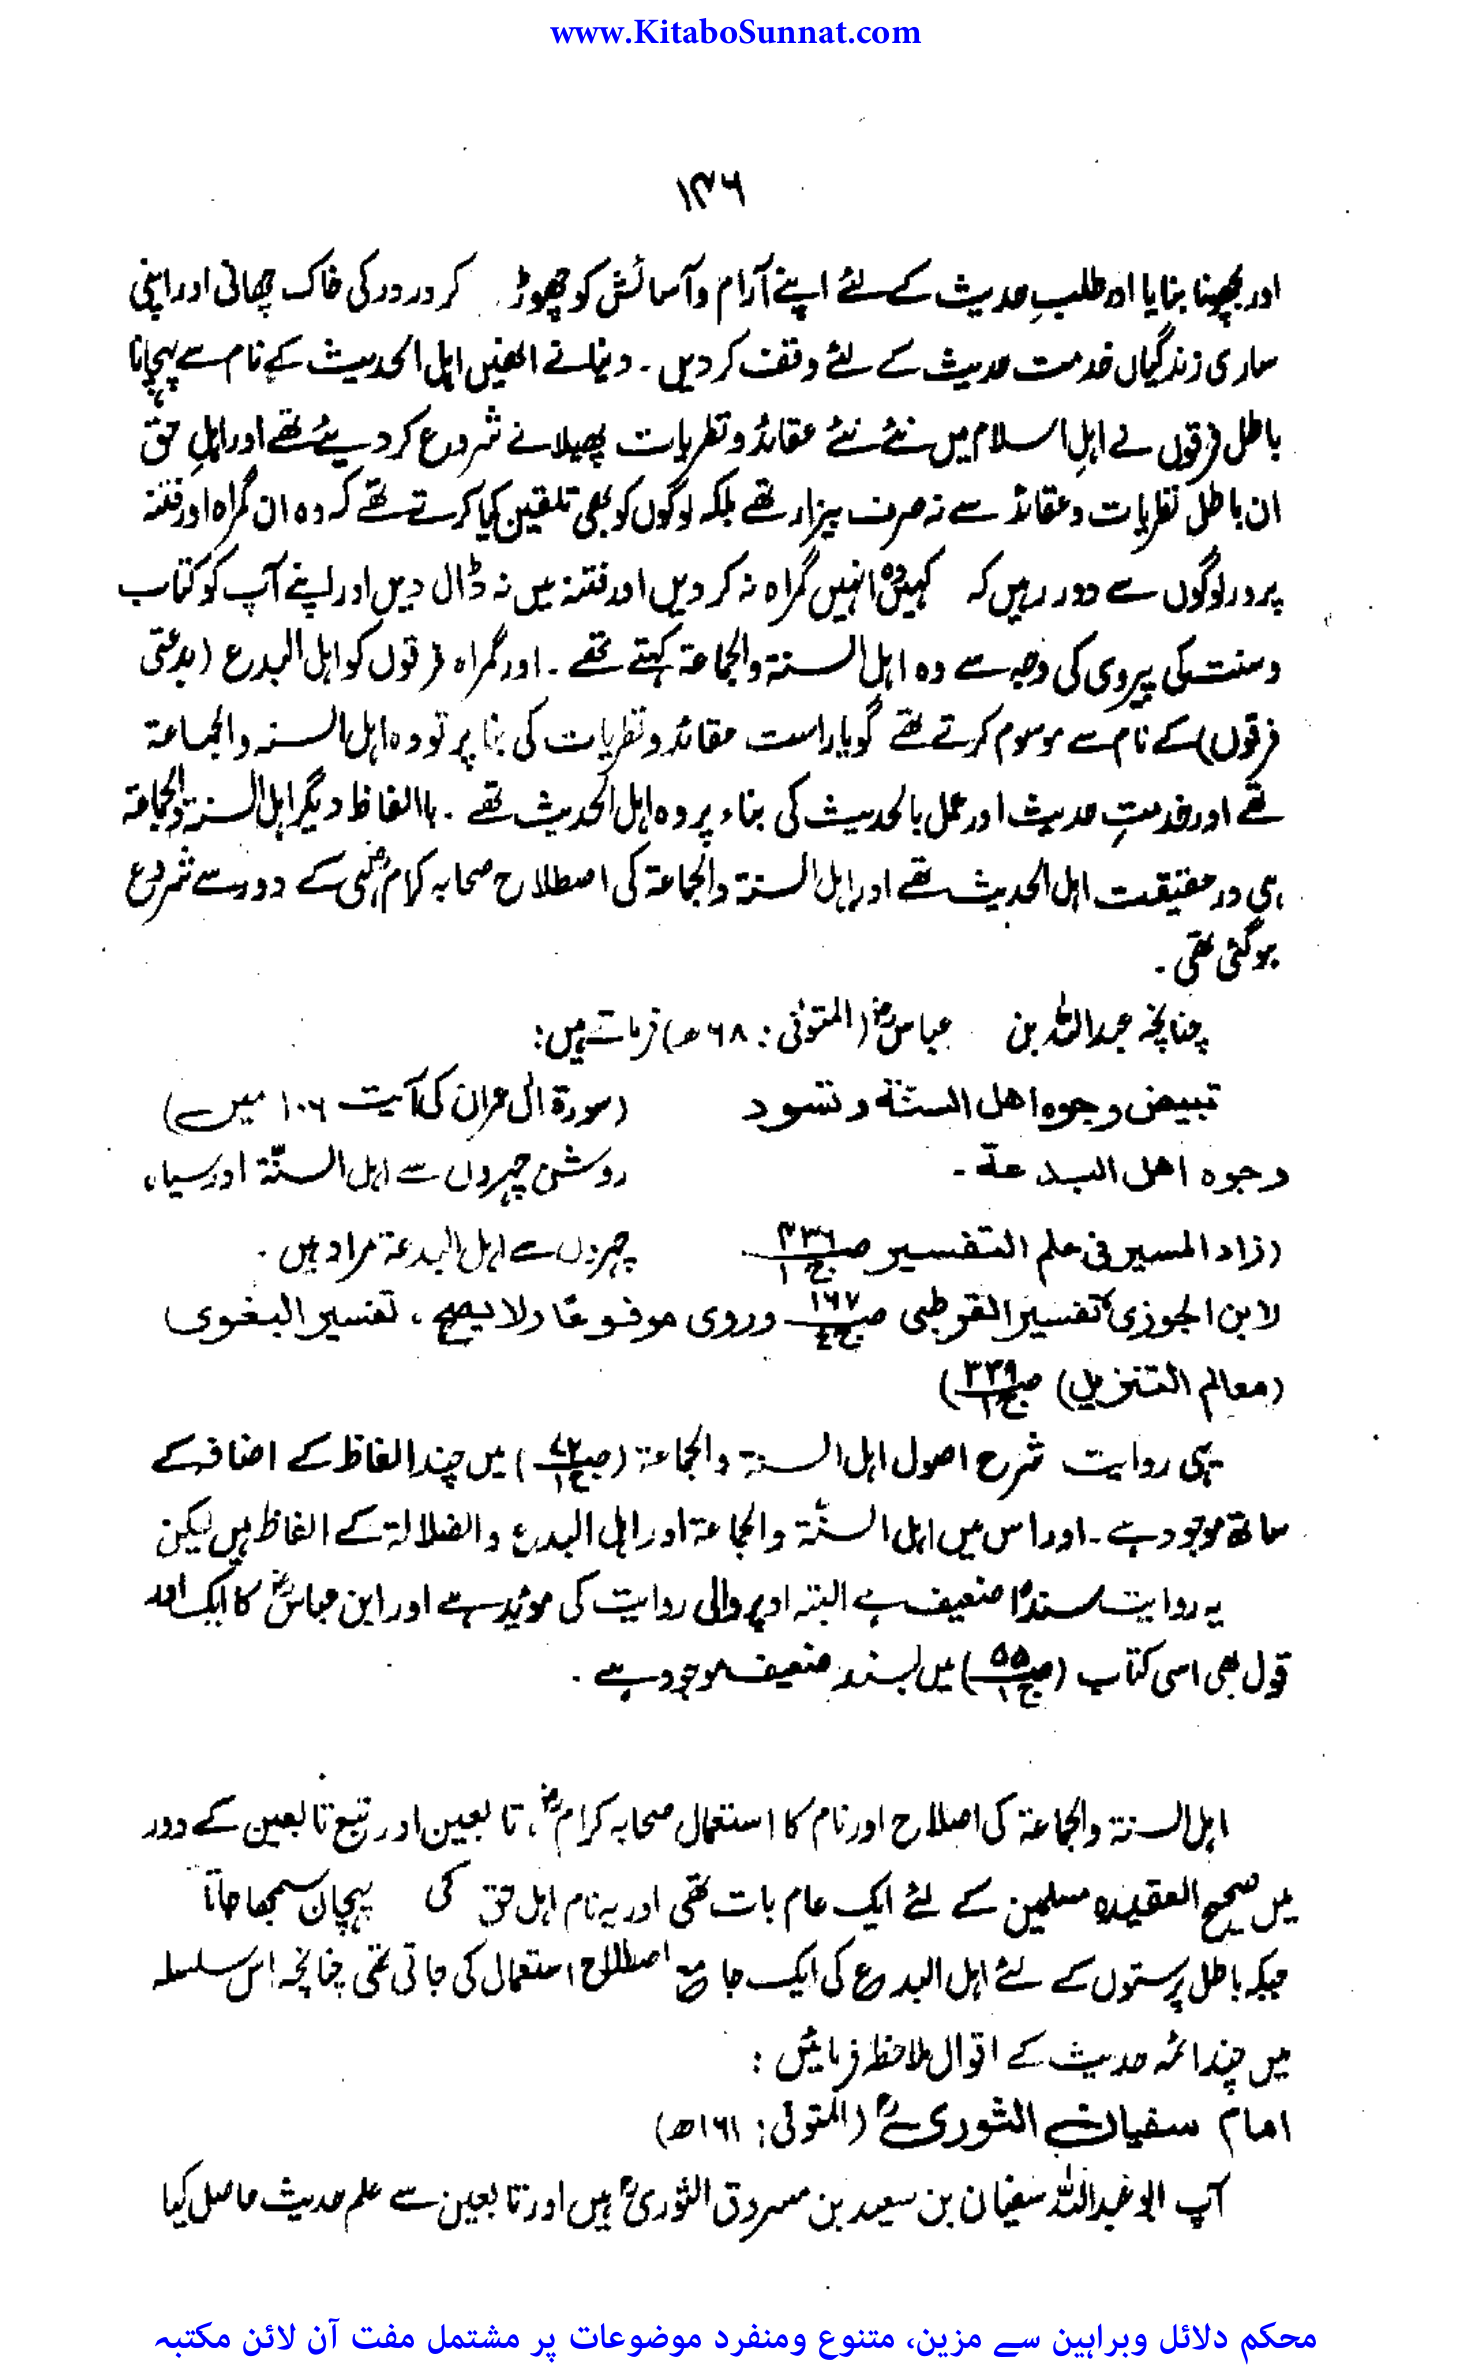 www.KitaboSunnat.com
۱۳۶
اور بچھونا بنایا اور طلبِ حدیث کے لئے اپنے آرام و آسائش کو چھوڑ کر در در کی خاک چھانی اور اپنی
ساری زندگیاں خدمت حدیث کے لئے وقف کر دیں ۔ دنیا نے انھیں اہل الحدیث کے نام سے پہچانا
باطل فرقوں نے اہلِ اسلام میں نئے نئے عقائد و نظریات پھیلانے شروع کر دیئے تھے اور اہلِ حق
ان باطل نظریات و عقائد سے نہ صرف بیزار تھے بلکہ لوگوں کو بھی تلقین کیا کرتے تھے کہ وہ ان گمراہ اور فتنہ
پرور لوگوں سے دور رہیں کہ کہیں وہ انہیں گمراہ نہ کر دیں اور فتنہ میں نہ ڈال دیں اور اپنے آپ کو کتاب
و سنت کی پیروی کی وجہ سے وہ اہل السنۃ والجماعۃ کہتے تھے ۔ اور گمراہ فرقوں کو اہل البدع (بدعتی
فرقوں) کے نام سے موسوم کرتے تھے گویا راست عقائد و نظریات کی بنا پر تو وہ اہل السنۃ والجماعۃ
تھے اور خدمتِ حدیث اور عمل بالحدیث کی بناء پر وہ اہل الحدیث تھے ۔ باالفاظ دیگر اہل السنۃ والجماعۃ
ہی در حقیقت اہل الحدیث تھے اور اہل السنۃ والجماعۃ کی اصطلاح صحابہ کرامؓ ہی کے دور سے شروع
ہوگئی تھی ۔
چنانچہ عبداللہ بن عباسؓ (المتوفی : ۶۸ھ) فرماتے ہیں :
تبیض وجوہ اھل السنّۃ و تسود (سورۃ آل عمران کی آیت ۱۰۶ میں سے)
وجوہ اھل البدعۃ ۔ روشن چہروں سے اہل السنّۃ اور سیاہ
(زاد المسیر فی علم التفسیر ص۴۳۶ ج۱ چہروں سے اہل البدعۃ مراد ہیں ۔
لابن الجوزی تفسیر القرطبی ص۱۶۷ ج٤ وروی مرفوعًا ولا یصح ، تفسیر البغوی
(معالم التنزیل) ص۳۳۹ ج۱)
یہی روایت شرح اصول اہل السنۃ والجماعۃ (ص۷۲ ج۱) میں چند الفاظ کے اضافہ کے
ساتھ موجود ہے ۔ اور اس میں اہل السنّۃ والجماعۃ اور اہل البدع والضلالۃ کے الفاظ ہیں لیکن
یہ روایت سنداً ضعیف ہے البتہ اوپر والی روایت کی موئید ہے اور ابن عباسؓ کا ایک اور
قول بھی اسی کتاب (ص۵۵ ج۱) میں بسند ضعیف موجود ہے ۔
اہل السنۃ والجماعۃ کی اصلاح اور نام کا استعمال صحابہ کرامؓ ، تابعین اور تبع تابعین کے دور
میں صحیح العقیدہ مسلمین کے لئے ایک عام بات تھی اور یہ نام اہل حق کی پہچان سمجھا جاتا
جبکہ باطل پرستوں کے لئے اہل البدع کی ایک جامع اصطلاح استعمال کی جاتی تھی چنانچہ اس سلسلہ
میں چند ائمہ حدیث کے اقوال ملاحظہ فرمائیں :
امام سفیان الثوریؒ (المتوفی : ۱۶۱ھ)
آپ ابو عبداللہ سفیان بن سعید بن مسروق الثوریؒ ہیں اور تابعین سے علم حدیث حاصل کیا
محکم دلائل وبراہین سے مزین، متنوع ومنفرد موضوعات پر مشتمل مفت آن لائن مکتبہ